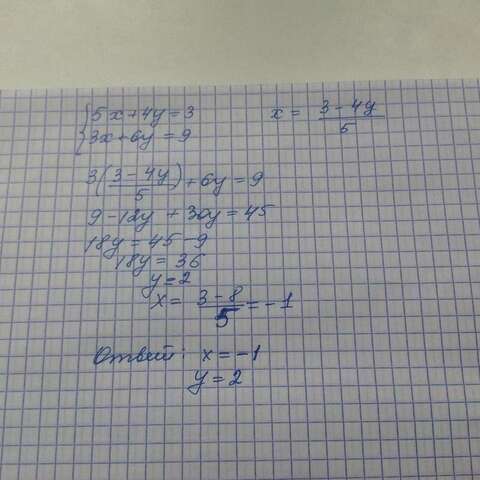 {5x+4y=3
{3x+6y=9
x= (3-4y)/5
3((3-4y)/5)+6y=9
9-12y+30y=45
18y=45-9
18y=36
y=2
x= (3-8)/5=-1
Ответ: x=-1
y=2